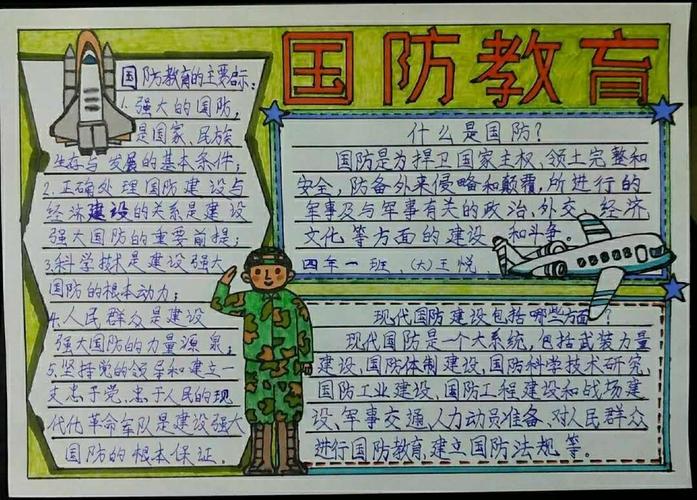 国防教育
国防教育的主要启示:
1.强大的国防,
是国家、民族
生存与发展的基本条件;
2.正确处理国防建设与
经济建设的关系是建设
强大国防的重要前提;
3.科学技术是建设强大
国防的根本动力;
4.人民群众是建设
强大国防的力量源泉;
5.坚持党的领导和建立一
支忠于党,忠于人民的现
代化革命军队是建设强大
国防的根本保证.
什么是国防?
国防是为捍卫国家主权、领土完整和
安全,防备外来侵略和颠覆,所进行的
军事及与军事有关的政治、外交、经济
文化等方面的建设 和斗争。
四年一班 (大)王悦
现代国防建设包括哪些方面?
现代国防是一个大系统,包括武装力量
建设、国防体制建设、国防科学技术研究、
国防工业建设、国防工程建设和战场建
设、军事交通、人力动员准备、对人民群众
进行国防教育、建立国防法规等。